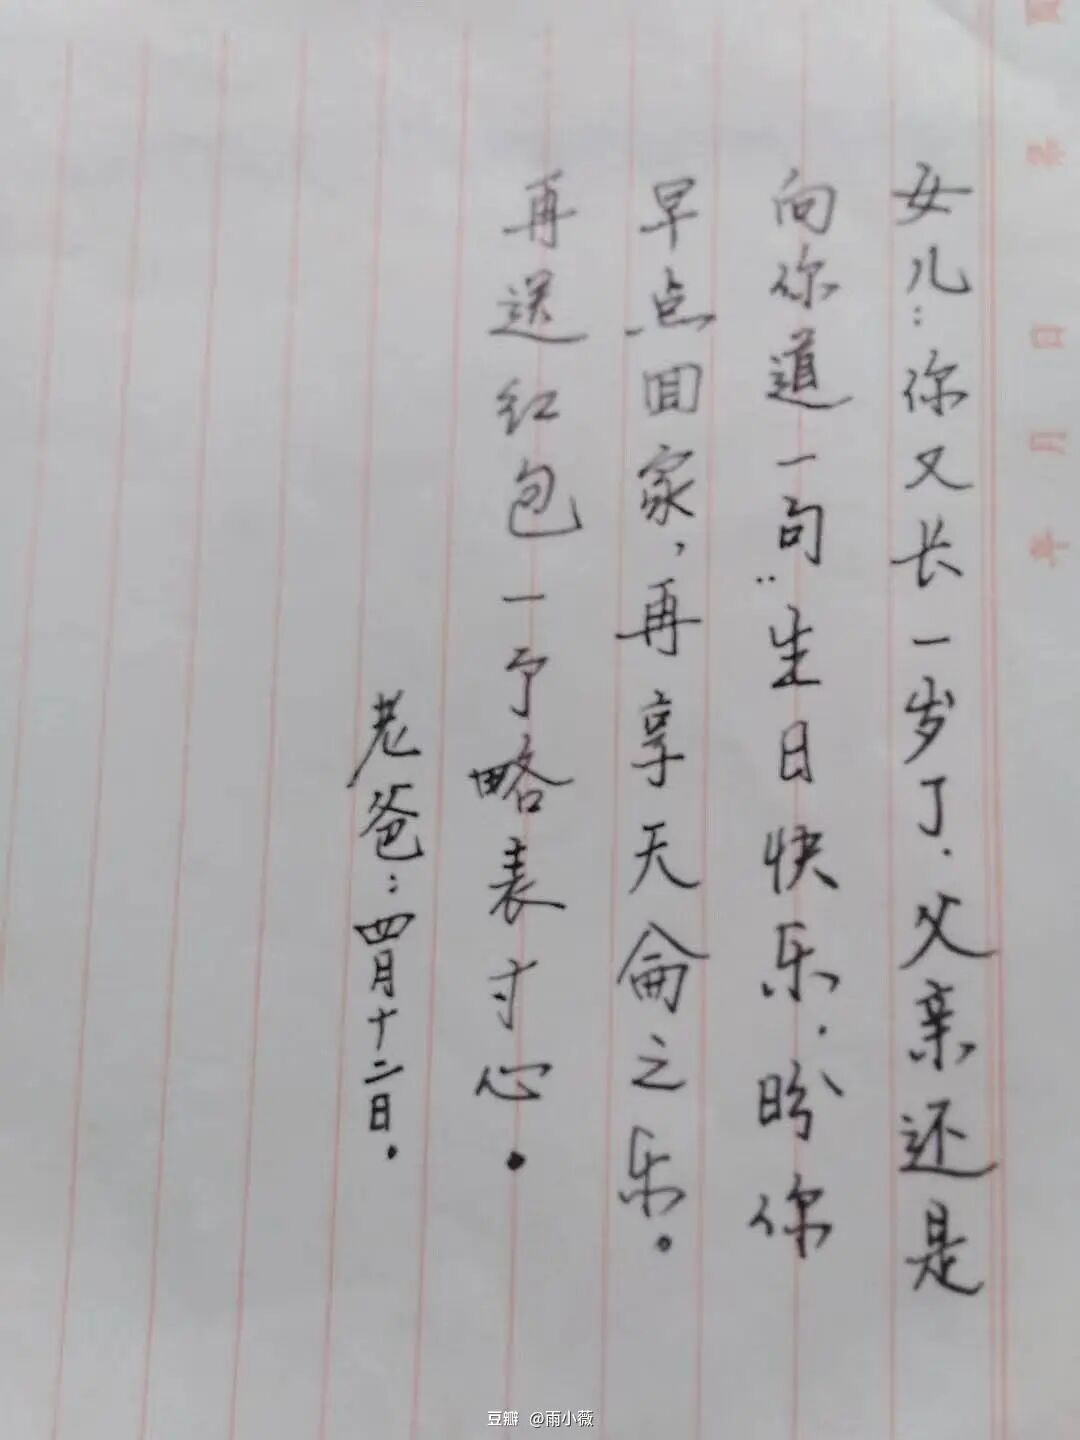 女儿：你又长一岁了.父亲还是
向你道一句：生日快乐.盼你
早点回家，再享天侖之乐。
再送红包一予略表寸心.
老爸：四月十二日.
年 月 日 第 页
豆瓣 @雨小薇